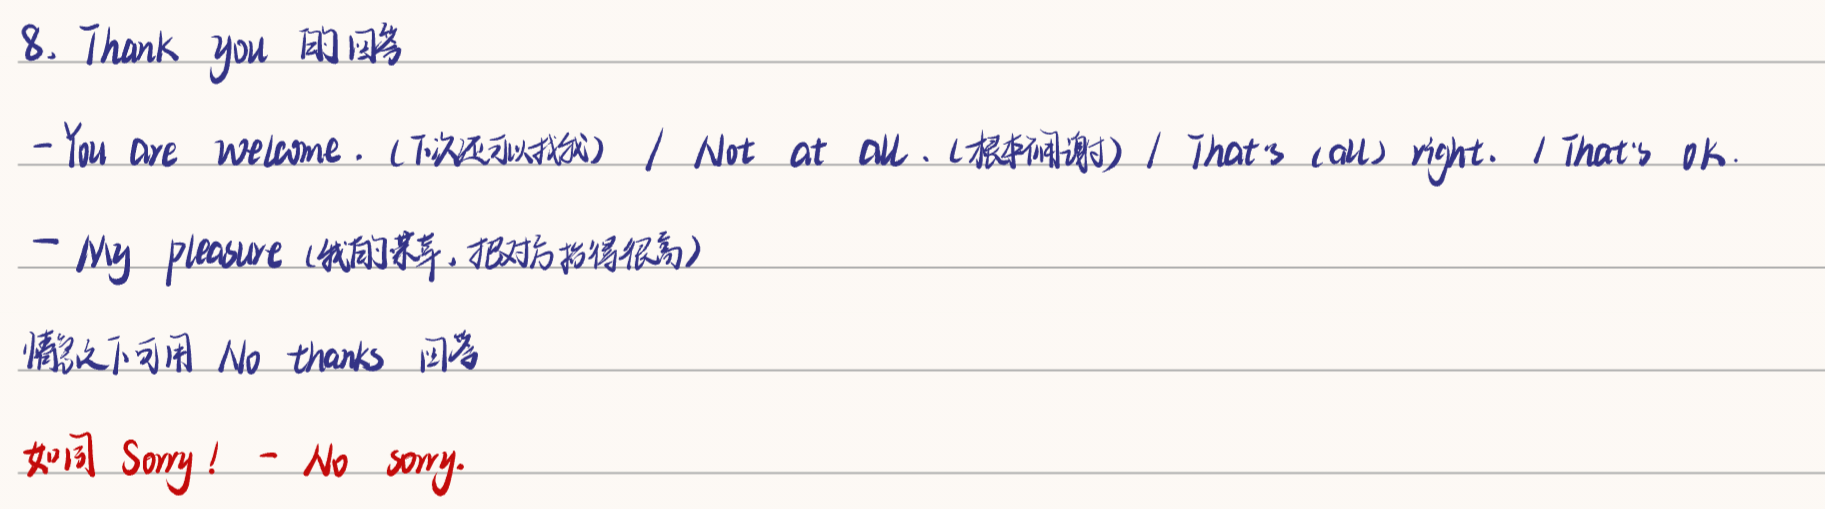 8. Thank you 的回答
- You are welcome. (下次还可以找我) / Not at all. (根本不用谢) / That's (all) right. / That's ok.
- My pleasure (我的荣幸, 把对方抬得很高)
情急之下可用 No thanks 回答
如同 Sorry! - No sorry.